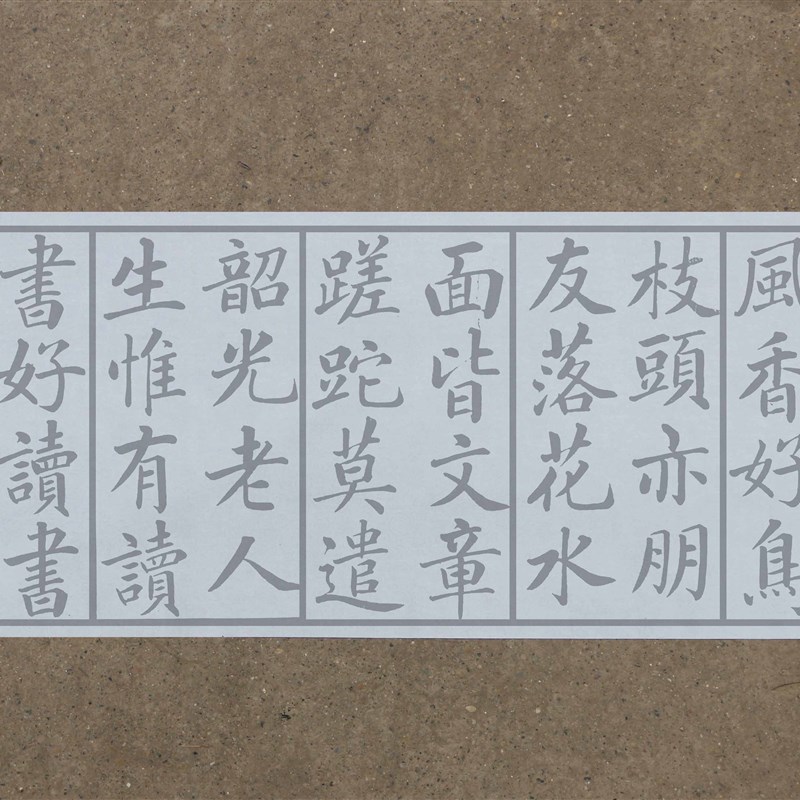 風香好鳥
枝頭亦朋
友落花水
面皆文章
蹉跎莫遣
韶光老人
生惟有讀
書好讀書